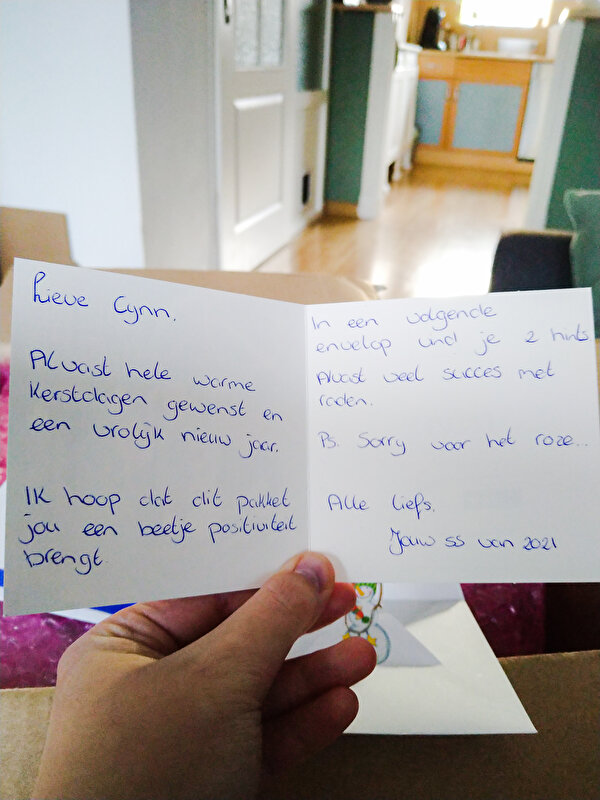 Lieve Cynn.
Alvast hele warme
Kerstdagen gewenst en
een vrolijk nieuw jaar.
IK hoop dat dit pakket
jou een beetje positiviteit
brengt.
In een volgende
envelop vind je 2 hints
Alvast veel succes met
raden.
Ps. Sorry voor het roze...
Alle liefs.
Jouw ss van 2021